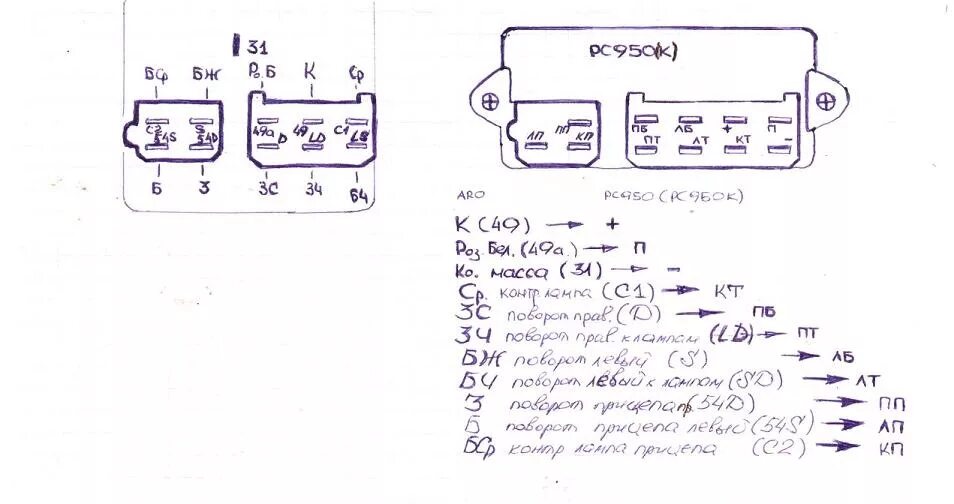 31
БСр БЖ Роз.Б К Ср
С2 S 49а 49 С1
54S 54D D LD LS
Б З ЗС ЗЧ БЧ
РС950(К)
ПП ПБ ЛБ + П
ЛП КП ПТ ЛТ КТ -
ARO РС950 (РС950К)
К (49) → +
Роз.Бел. (49а.) → П
Ко. масса (31) → -
Ср. контр лампа (С1) → КТ
ЗС поворот прав. (D) → ПБ
ЗЧ поворот прав. к лампам (LD) → ПТ
БЖ поворот левый (S) → ЛБ
БЧ поворот левый к лампам (SD) → ЛТ
З поворот прицепа пр. (54D) → ПП
Б поворот прицепа левый (54S) → ЛП
БСр контр лампа прицепа (С2) → КП